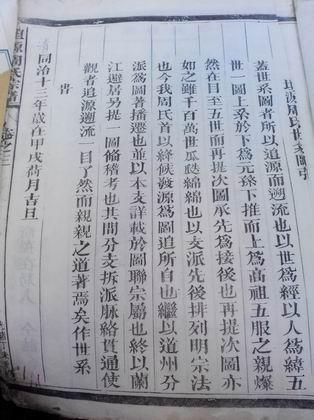 追源周氏世系圖引
蓋世系圖者所以追源而遡流也以世為經以人為緯五
世一圖上系於下為元孫下推而上為高祖五服之親燦
然在目至五世而再提次圖承先為接後也再提次圖亦
如之雖千百萬世瓜瓞綿綿也以支派先後排列明宗法
也今我周氏首以終候發源為圖追所自也繼以道州分
派為圖著播遷也並以本支詳載於圖聯宗屬也終以蘭
江避居另提一圖備稽考也其間分支拆派脉絡貫通使
觀者追源遡流一目了然而親親之道著焉矣作世系
旹
同治十三年歲在甲戌荷月吉旦